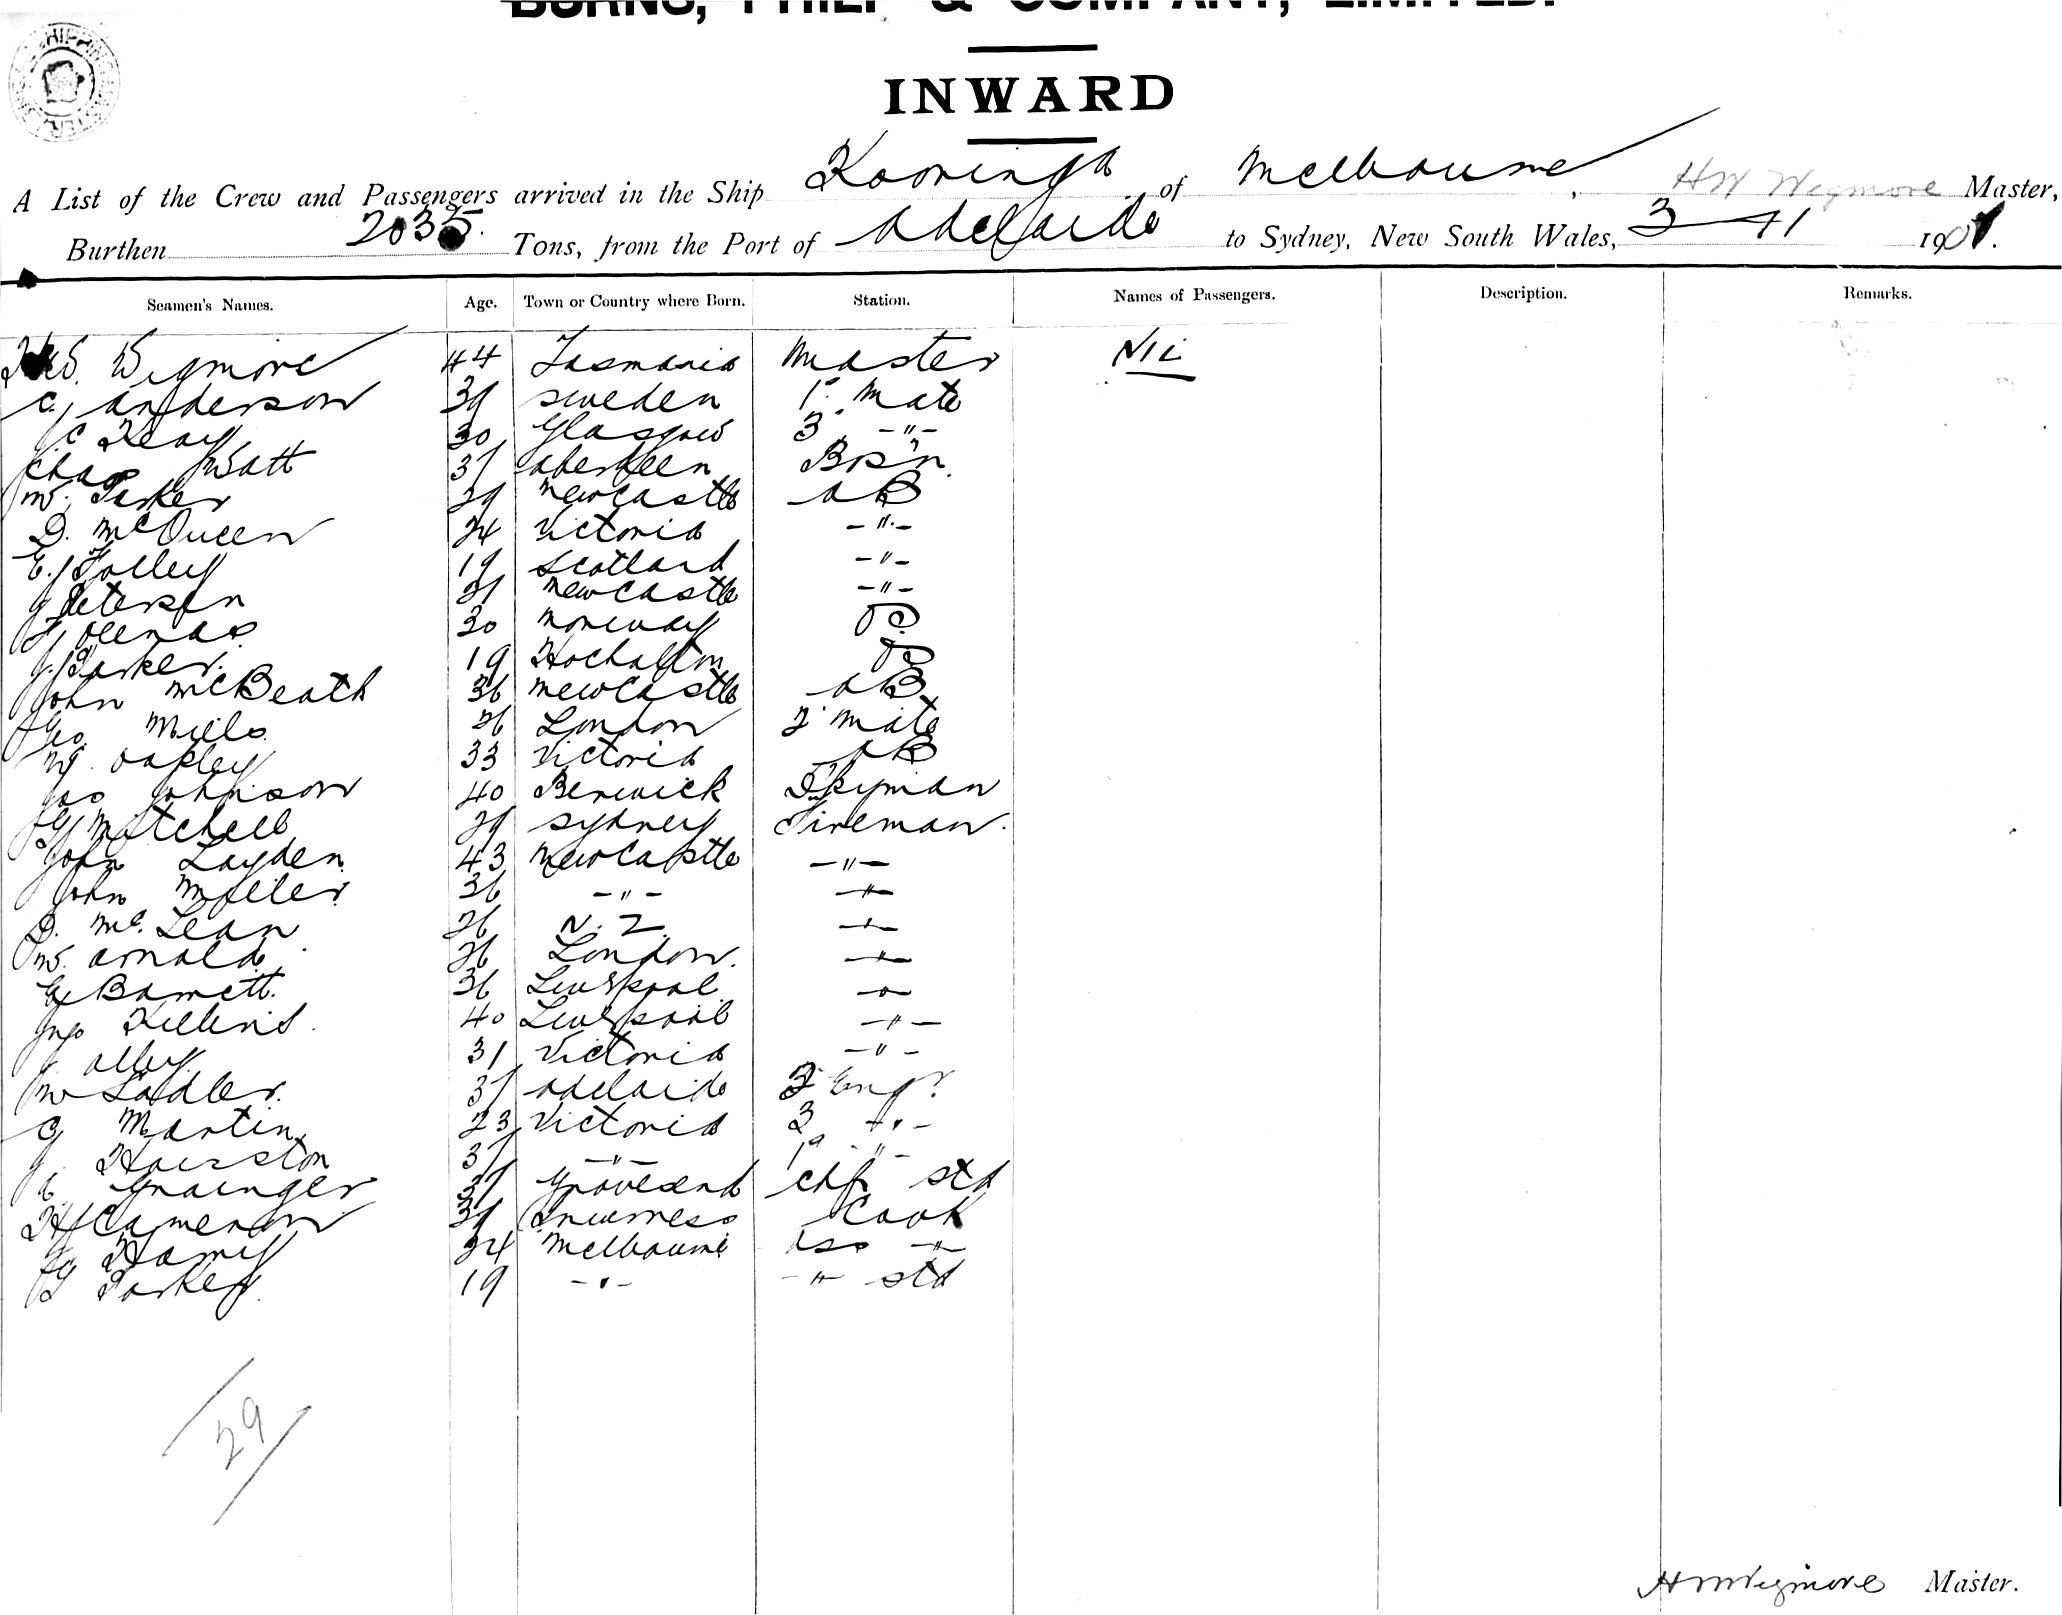 BURNS, PHILP & COMPANY, LIMITED.
INWARD
A List of the Crew and Passengers arrived in the Ship Kooringa of Melbourne, H W Wigmore Master,
Burthen 2035 Tons, from the Port of Adelaide to Sydney, New South Wales, 3 - 11 1901.
Seamen's Names. Age. Town or Country where Born. Station. Names of Passengers. Description. Remarks.
Wigmore 44 Tasmania Master Nil
C. Anderson 39 Sweden 1st Mate
J C Keay 30 Glasgow 3 -"-
Chas Watt 37 Aberdeen Bos'n.
W. Parker 29 Newcastle AB
D. McQueen 24 Victoria -"-
E. Folley 19 Scotland -"-
J Peterson 21 Newcastle -"-
30 Norway OS
J. Parker. 19 OS
John McBeath 36 Newcastle AB
Geo Mills 26 London 2 Mate
W. Oakley 33 Victoria AB
Jas Johnson 40 Berwick Dkyman
G Mitchell 29 Sydney Fireman.
John Layden 43 Newcastle -"-
John Miller 36 -"- -"-
D. Mc.Lean 26 N. Z. -"-
W. Arnold 26 London. -"-
Barnett. 36 Liverpool -"-
Jno 40 Liverpool -"-
J. Alley 31 Victoria -"-
W Sadler. 37 Adelaide 2 Engr
G Martin 23 Victoria 3 -"-
J. Hairston 37 -"- 1st -"-
Grainger 37 Gravesend Chf Std
H Cameron 39 Inverness Cook
24 Melbourne Ass -"-
19 -"- -"- Std
29
H W Wigmore Master.